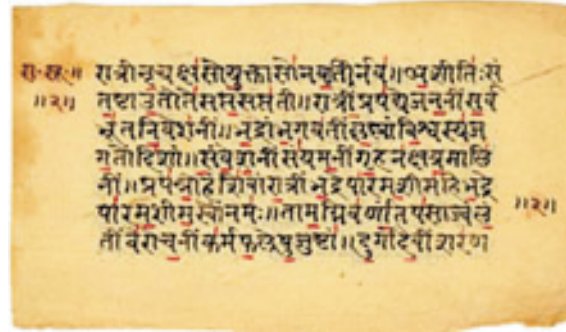 रा·सू·॥ रात्रीनृचक्षसोयुक्तासोनवतीर्नव॥अशीतिःसं
॥२॥ त्वष्टाउतोतेसप्तसप्तती॥रात्रींप्रपद्येजननींसर्व
भूतनिवेशनीं॥भद्रांभगवतींकृष्णांविश्वस्यज
गतोनिशां॥संवेशनींसंयमनींग्रहनक्षत्रमालि
नीं॥प्रपन्नोहंशिवांरात्रींभद्रेपारमशीमहिभद्रे
पारमशीमह्योंनमः॥तामग्निवर्णांतपसाज्वलं ॥२॥
तींवैरोचनींकर्मफलेषुजुष्टां॥दुर्गांदेवींशरण